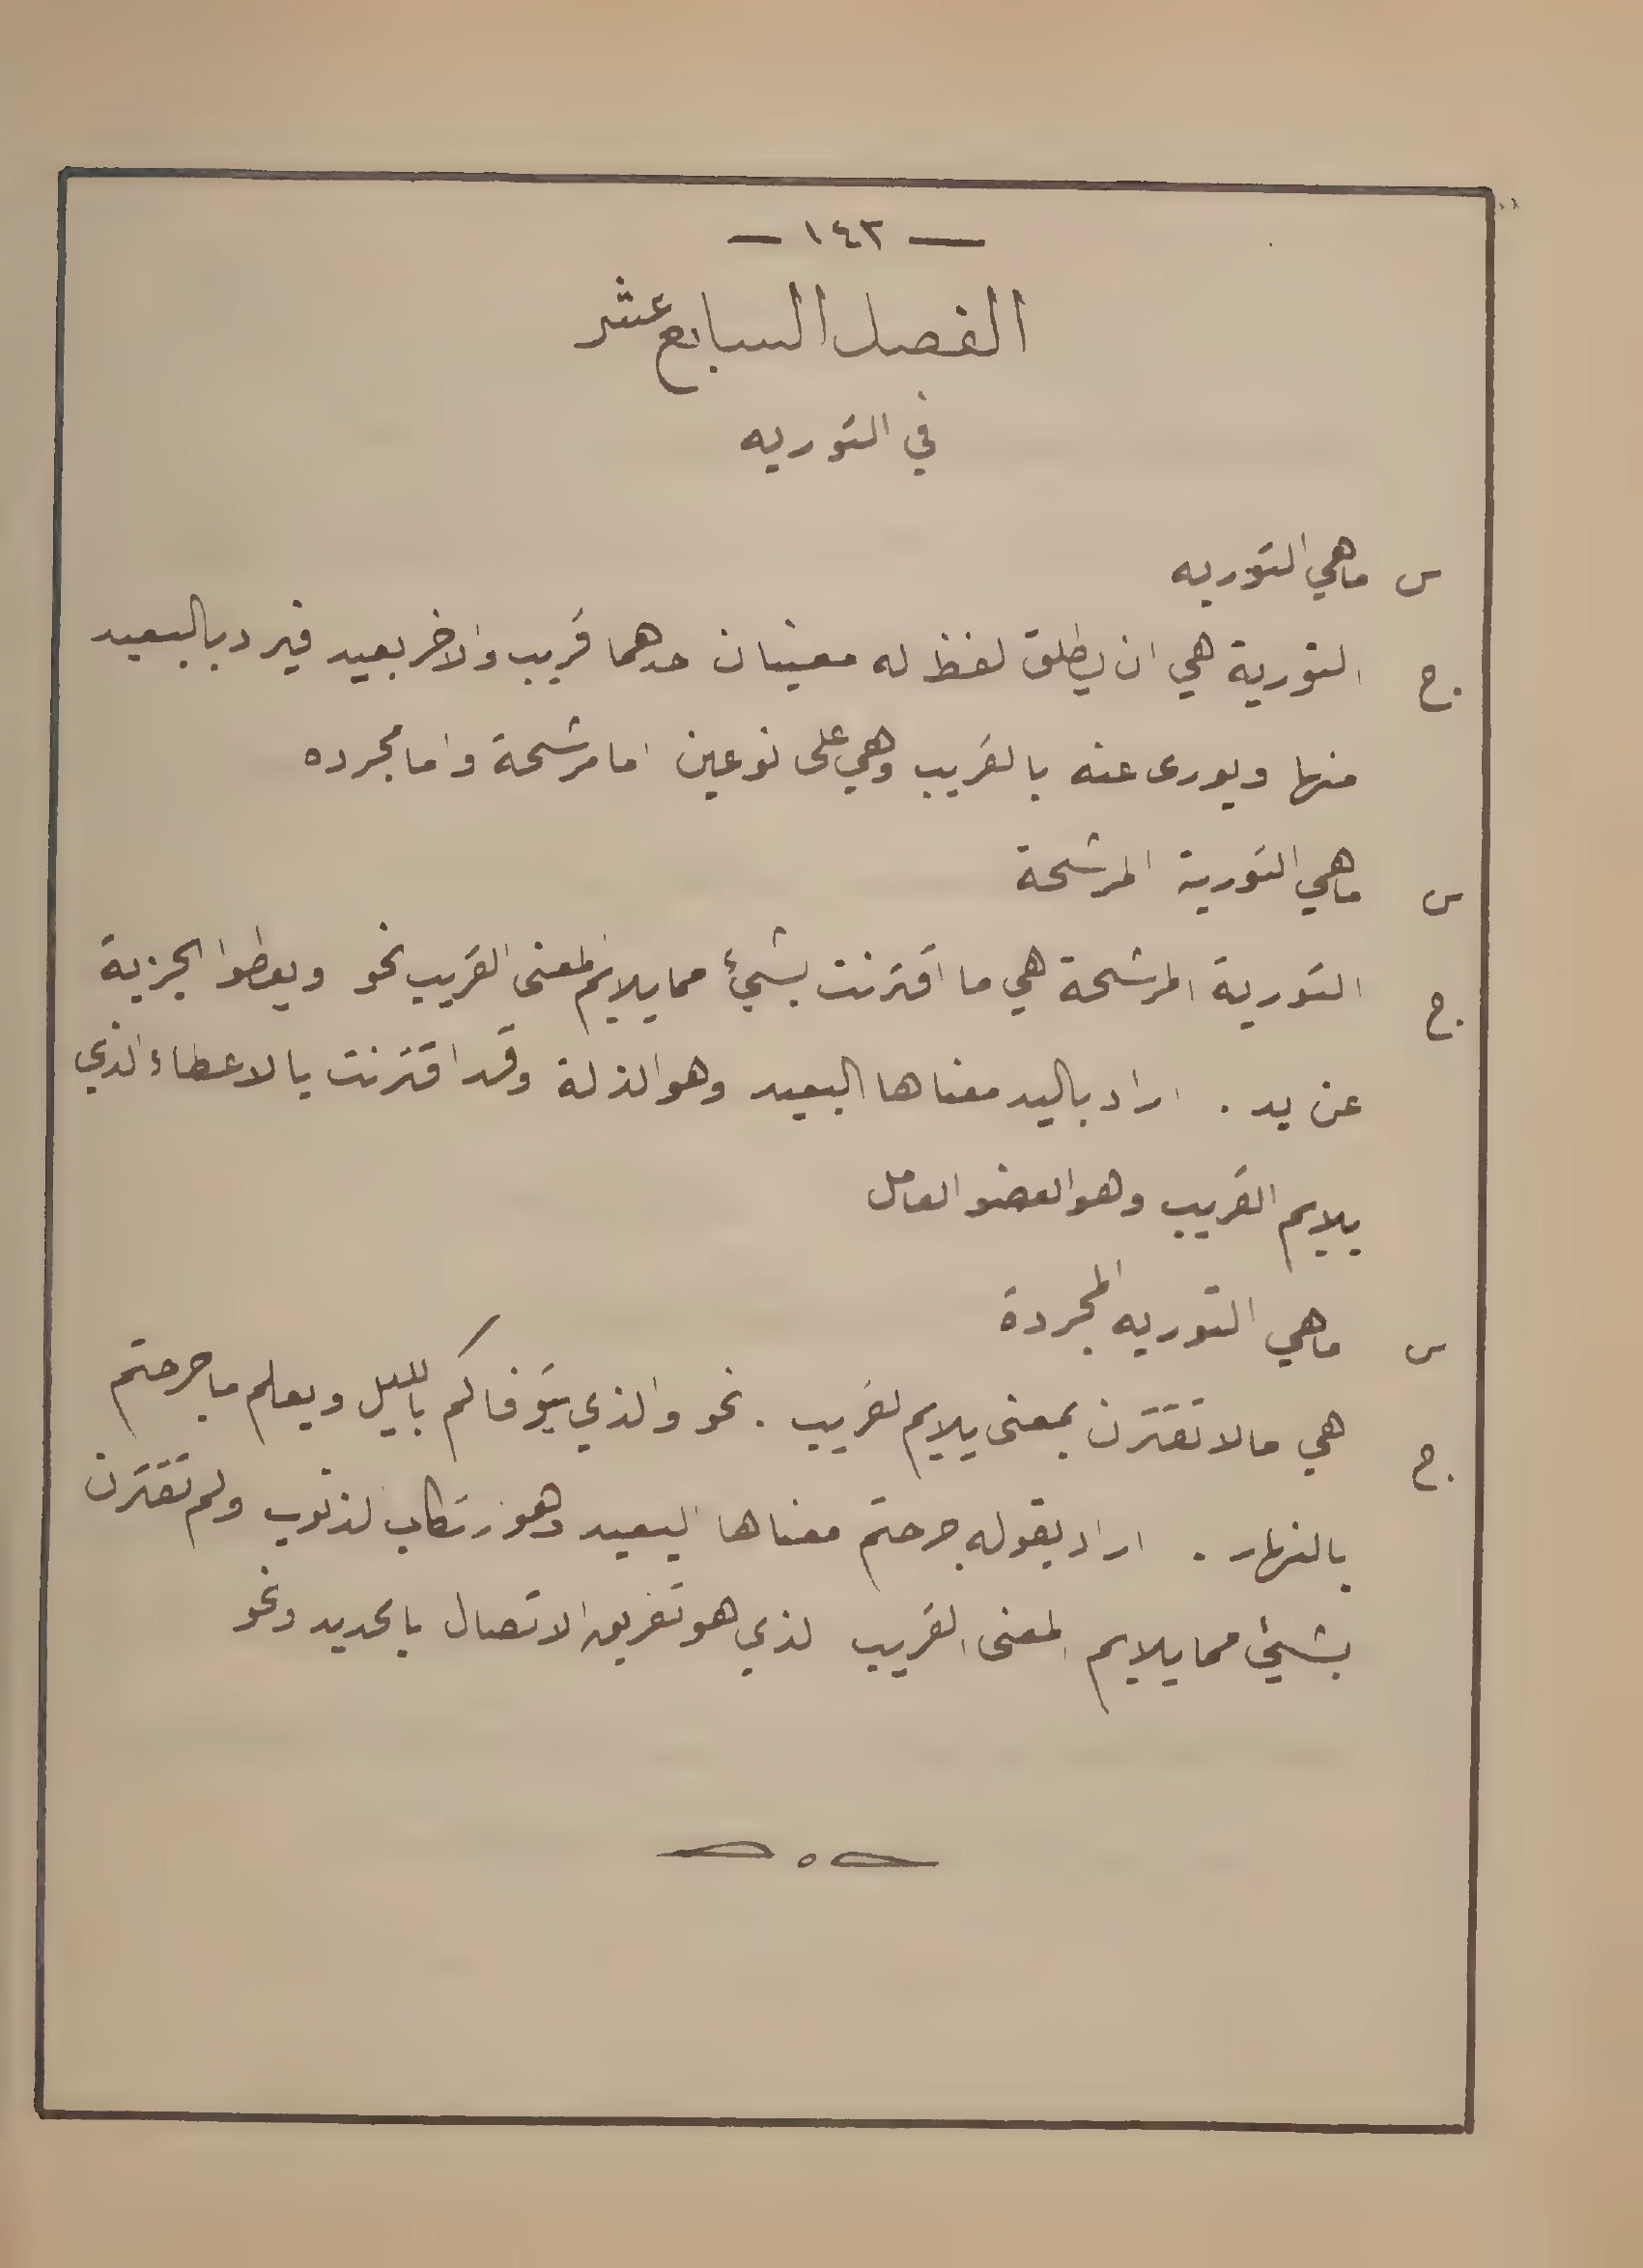 — ١٤٣ —
الفصل السابع عشر
في التوريه
س ماهي التوريه
ج. التورية هي ان يطلق لفظ له معنيان حدهما قريب والاخر بعيد فيرد بالبعيد
منها ويورى عنه بالقريب وهي على نوعين اما مرشحة واما مجرده
س ماهي التورية المرشحة
ج. التورية المرشحة هي ما اقترنت بشيئ مما يلايم لمعنى القريب نحو ويعطوا الجزية
عن يد . اراد باليد معناها البعيد وهو الذلة وقد اقترنت بالاعطاء الذي
يلايم القريب وهو العضو العامل
س ماهي التوريه المجردة
ج. هي مالا تقترن بمعنى يلايم لقريب . نحو والذي يتوفاكم بالليل ويعلم ما جرحتم
بالنهار . اراد بقوله جرحتم معناها البعيد وهو رتكاب لذنوب ولم تقترن
بشيئ مما يلايم المعنى القريب لذي هو تفريق الاتصال بالحديد ونحو